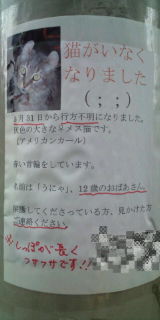 猫がいなく
なりました
(;;)
月31日から行方不明になりました。
灰色の大きなメス猫です。
(アメリカンカール)
赤い首輪をしています。
名前は「うにゃ」、12歳のおばあさん。
保護してくださっている方、見かけた方
ご連絡ください
しっぽが長く
フサフサです!!